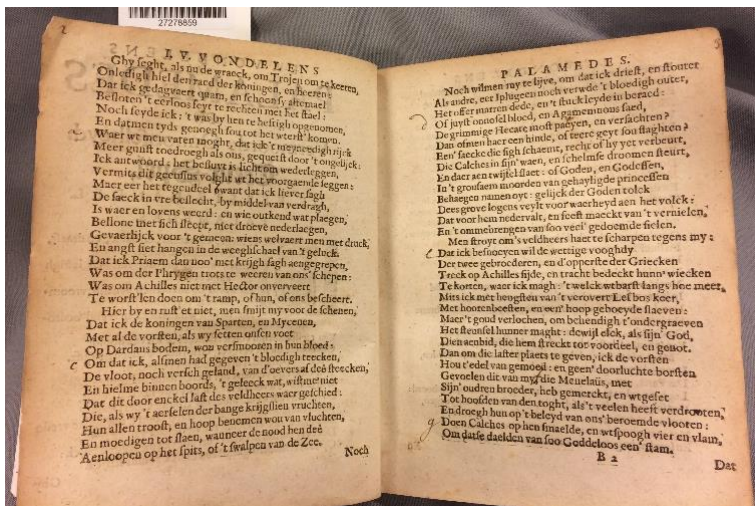 27278859
2
I. V. VONDELENS
Ghy seght, als nu de wraeck, om Trojen om te keeren,
Onledigh hiel den raed der koningen, en heeren:
Dat ick gedagvaert quam, en schoon sy altemael
Besloten 't eerloos feyt te rechten met het stael:
Noch seyde ick: 't was by hen te heftigh opgenomen,
En datmen tyds genoegh sou tot het uterst' komen.
Waer we men varen moght, dat ick 't meyneedigh rijck
Meer gunst toedroegh als ons, gequest door 't ongelijck:
Ick antwoord: het besluyt is licht om wederleggen,
Vermits dit geensins volght ut het voorgaende seggen:
Maer eer het tegendeel want dat ick liever sagh
De saeck in vre beslecht, by middel van verdragh,
Is waer en lovens weerd: en wie outkend wat plaegen,
Bellone met sich sleept, met droeve nederlaegen,
Gevaerlijck voor 't gemeen: wiens welvaert men met druck,
En angst siet hangen in de weeghschael van 't geluck.
Dat ick Priaem dan noo' met krijgh sagh aengegrepen,
Was om der Phrygen trots te weeren van ons' schepen:
Was om Achilles niet met Hector onverveert
Te worst'len doen om 't ramp, of hun, of ons bescheert.
Hier by en rust'et niet, men smijt my voor de schenen,
Dat ick de koningen van Sparten, en Mycenen,
Met al de vorsten, als wy setten onsen voet
Op Dardaus bodem, wou versmooren in hun bloed:
c Om dat ick, alsmen had gegeven 't bloedigh teecken,
De vloot, noch versch geland, van d'oevers af deê steecken,
En hielme binnen boords, 't geleeck wat, wist me niet
Dat dit door enckel last des veldheers waer geschied:
Die, als wy 't aerselen der bange krijgslien vruchten,
Hun allen troost, en hoop benomen wou van vluchten,
En moedigen tot staen, wanneer de nood hen deê
Aenloopen op het spits, of 't swalpen van de Zee.
Noch
PALAMEDES.
Noch wilmen my te lijve, om dat ick driest, en stouter
Als andre, eer Iphigeen noch verwde 't bloedigh outer,
Het offer marren dede, en 't stuck leyde in beraed:
Of juyst onnosel bloed, and Agamemnons saed,
De grimmige Hecate most payen, en versachten?
Dan of men haer een hinde, of teere geyt sou slaghten?
Een' saecke die sigh schaemt, recht of hy yet verbeurt,
Die Calches in sijn' waen, en schelmse droomen steurt,
En daer aen twijfel slaet: of Goden, en Godessen,
In 't grousaem moorden van gehayligde princessen
Behaegen namen oyt: gelijck der Goden tolck
Dees grove logens veylt voor waerheyd aen het volck:
Dat voor hem nedervalt, en feest maeckt van 't vernielen,
En 't ommebrengen van soo veel' gedoemde sielen.
Men stroyt om 's veldheers haet te scharpen tegens my:
e Dat ick besnoeyen wil de wettige vooghdy
Der twee gebroederen, en d'opperste der Griecken
Treck op Achilles sijde, en tracht bedeckt hunn' wiecken
Te korten, waer ick magh: 't welck wtbarst langs hoe meer,
Mits ick met hengsten van 't verovert Lesbos keer,
Met hoorenbeesten, en een' hoop geboeyde slaeven:
Maer 't goud verlochen, om behendigh t'ondergraeven
Het steunsel hunner maght: dewijl elck, als sijn' God,
Dien aenbid, die hem streckt tot voordeel, en genot.
Dan om die laster plaets te geven, ick de vorsten
Hou t'edel van gemoed: en geen' doorluchte borsten
Gevoelen dit van my, die Menelaüs, met
Sijn' oudren broeder, heb gemerckt, en wtgeset
Tot hoofden van den toght, als 't veelen heeft verdrooten,
En droegh hun op 't beleyd van ons' beroemde vlooten:
g Doen Calches op hen smaelde, en wtspoogh vier en vlam,
Om datse daelden van soo Goddeloos een' stam.
B 2
Dat